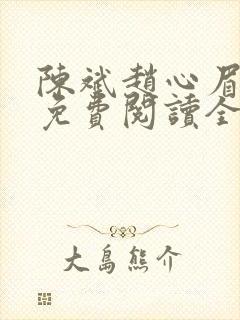 陳斌趙心眉
免費閱讀全
大島熊介